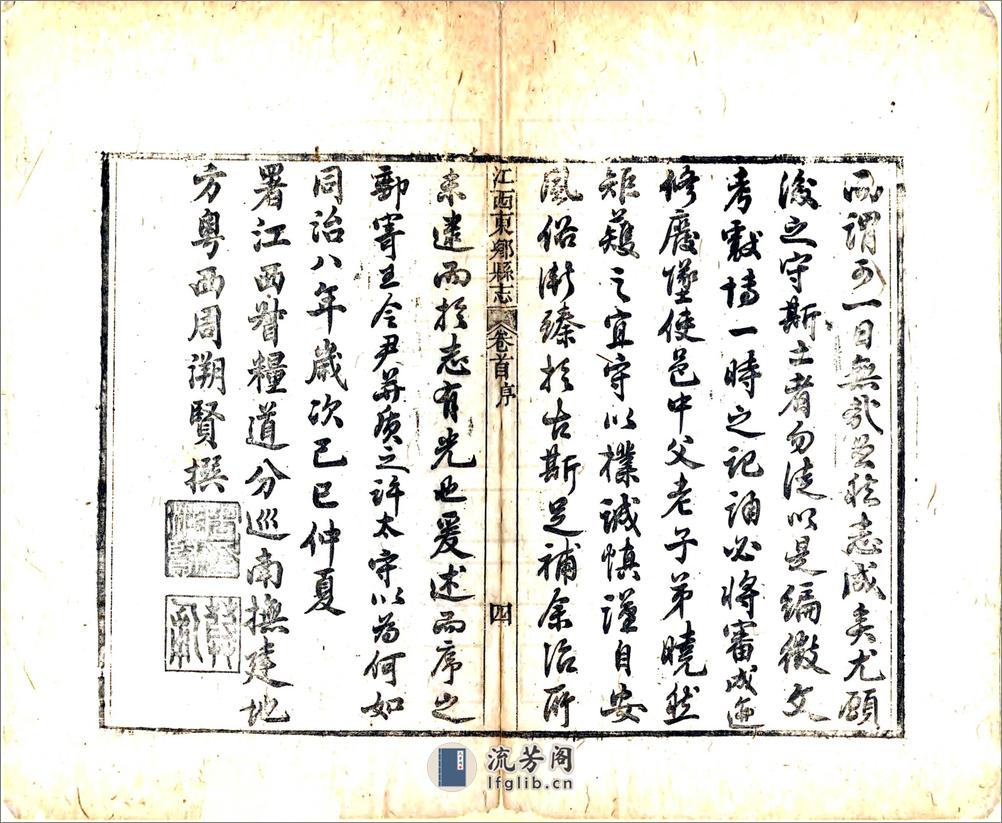 所謂可一日無哉然於志成矣尤願
後之守斯土者勿徒以是編徵文
考獻博一時之記誦必將審成迹
修廢墜使邑中父老子弟曉然
矩矱之宜守以樸誠慎謹自安
風俗漸臻於古斯足補余治所
江西東鄉縣志 卷首序 四
未逮而於志有光也爰述而序之
郵寄王令尹并質之許太守以為何如
同治八年歲次己巳仲夏
署江西督糧道分巡南撫建地
方粵西周溯賢撰
流芳阁
lfglib.cn